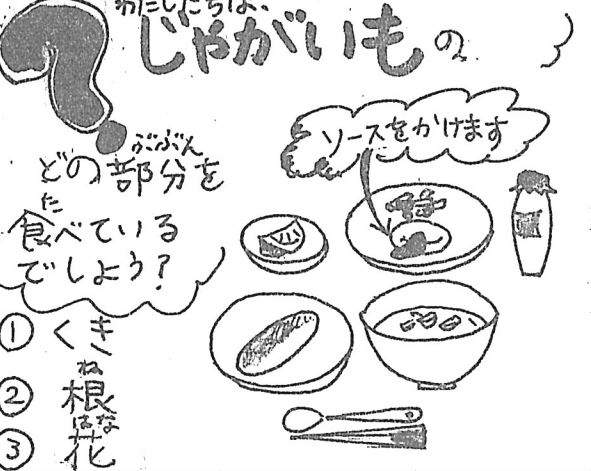 わたしたちは、
じゃがいもの
どの部分を
ぶぶん
食べている
た
でしょう？
① くき
② 根
ね
③ 花
はな
ソースをかけます